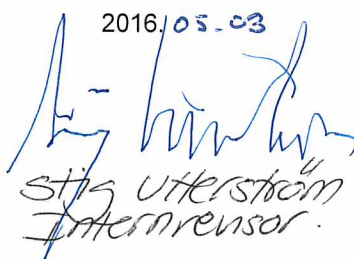 2016.05-03
Stig Utterström
Internrevisor.